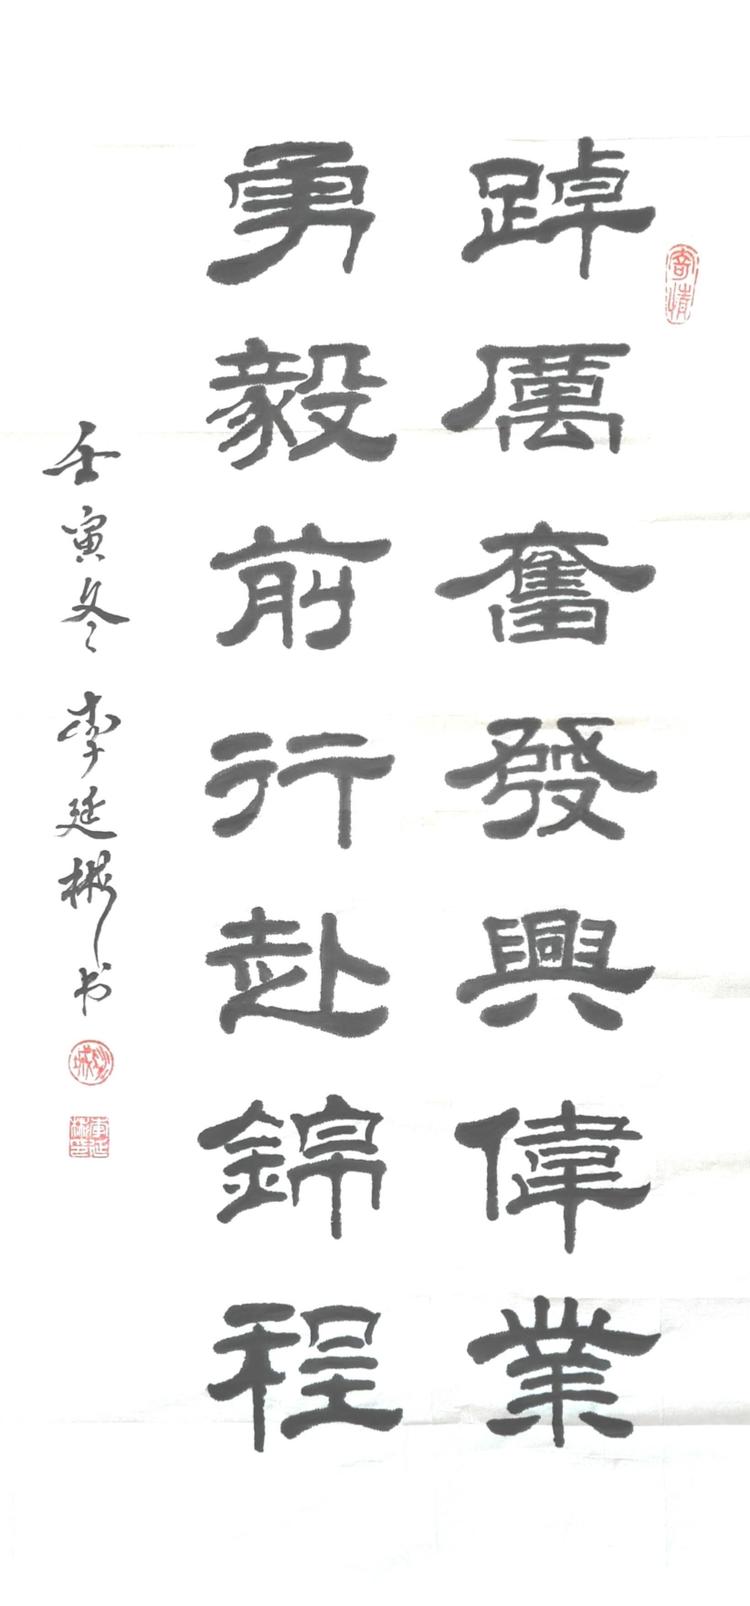 踔厲奮發興偉業
勇毅前行赴錦程
壬寅冬 李廷彬书
寄情